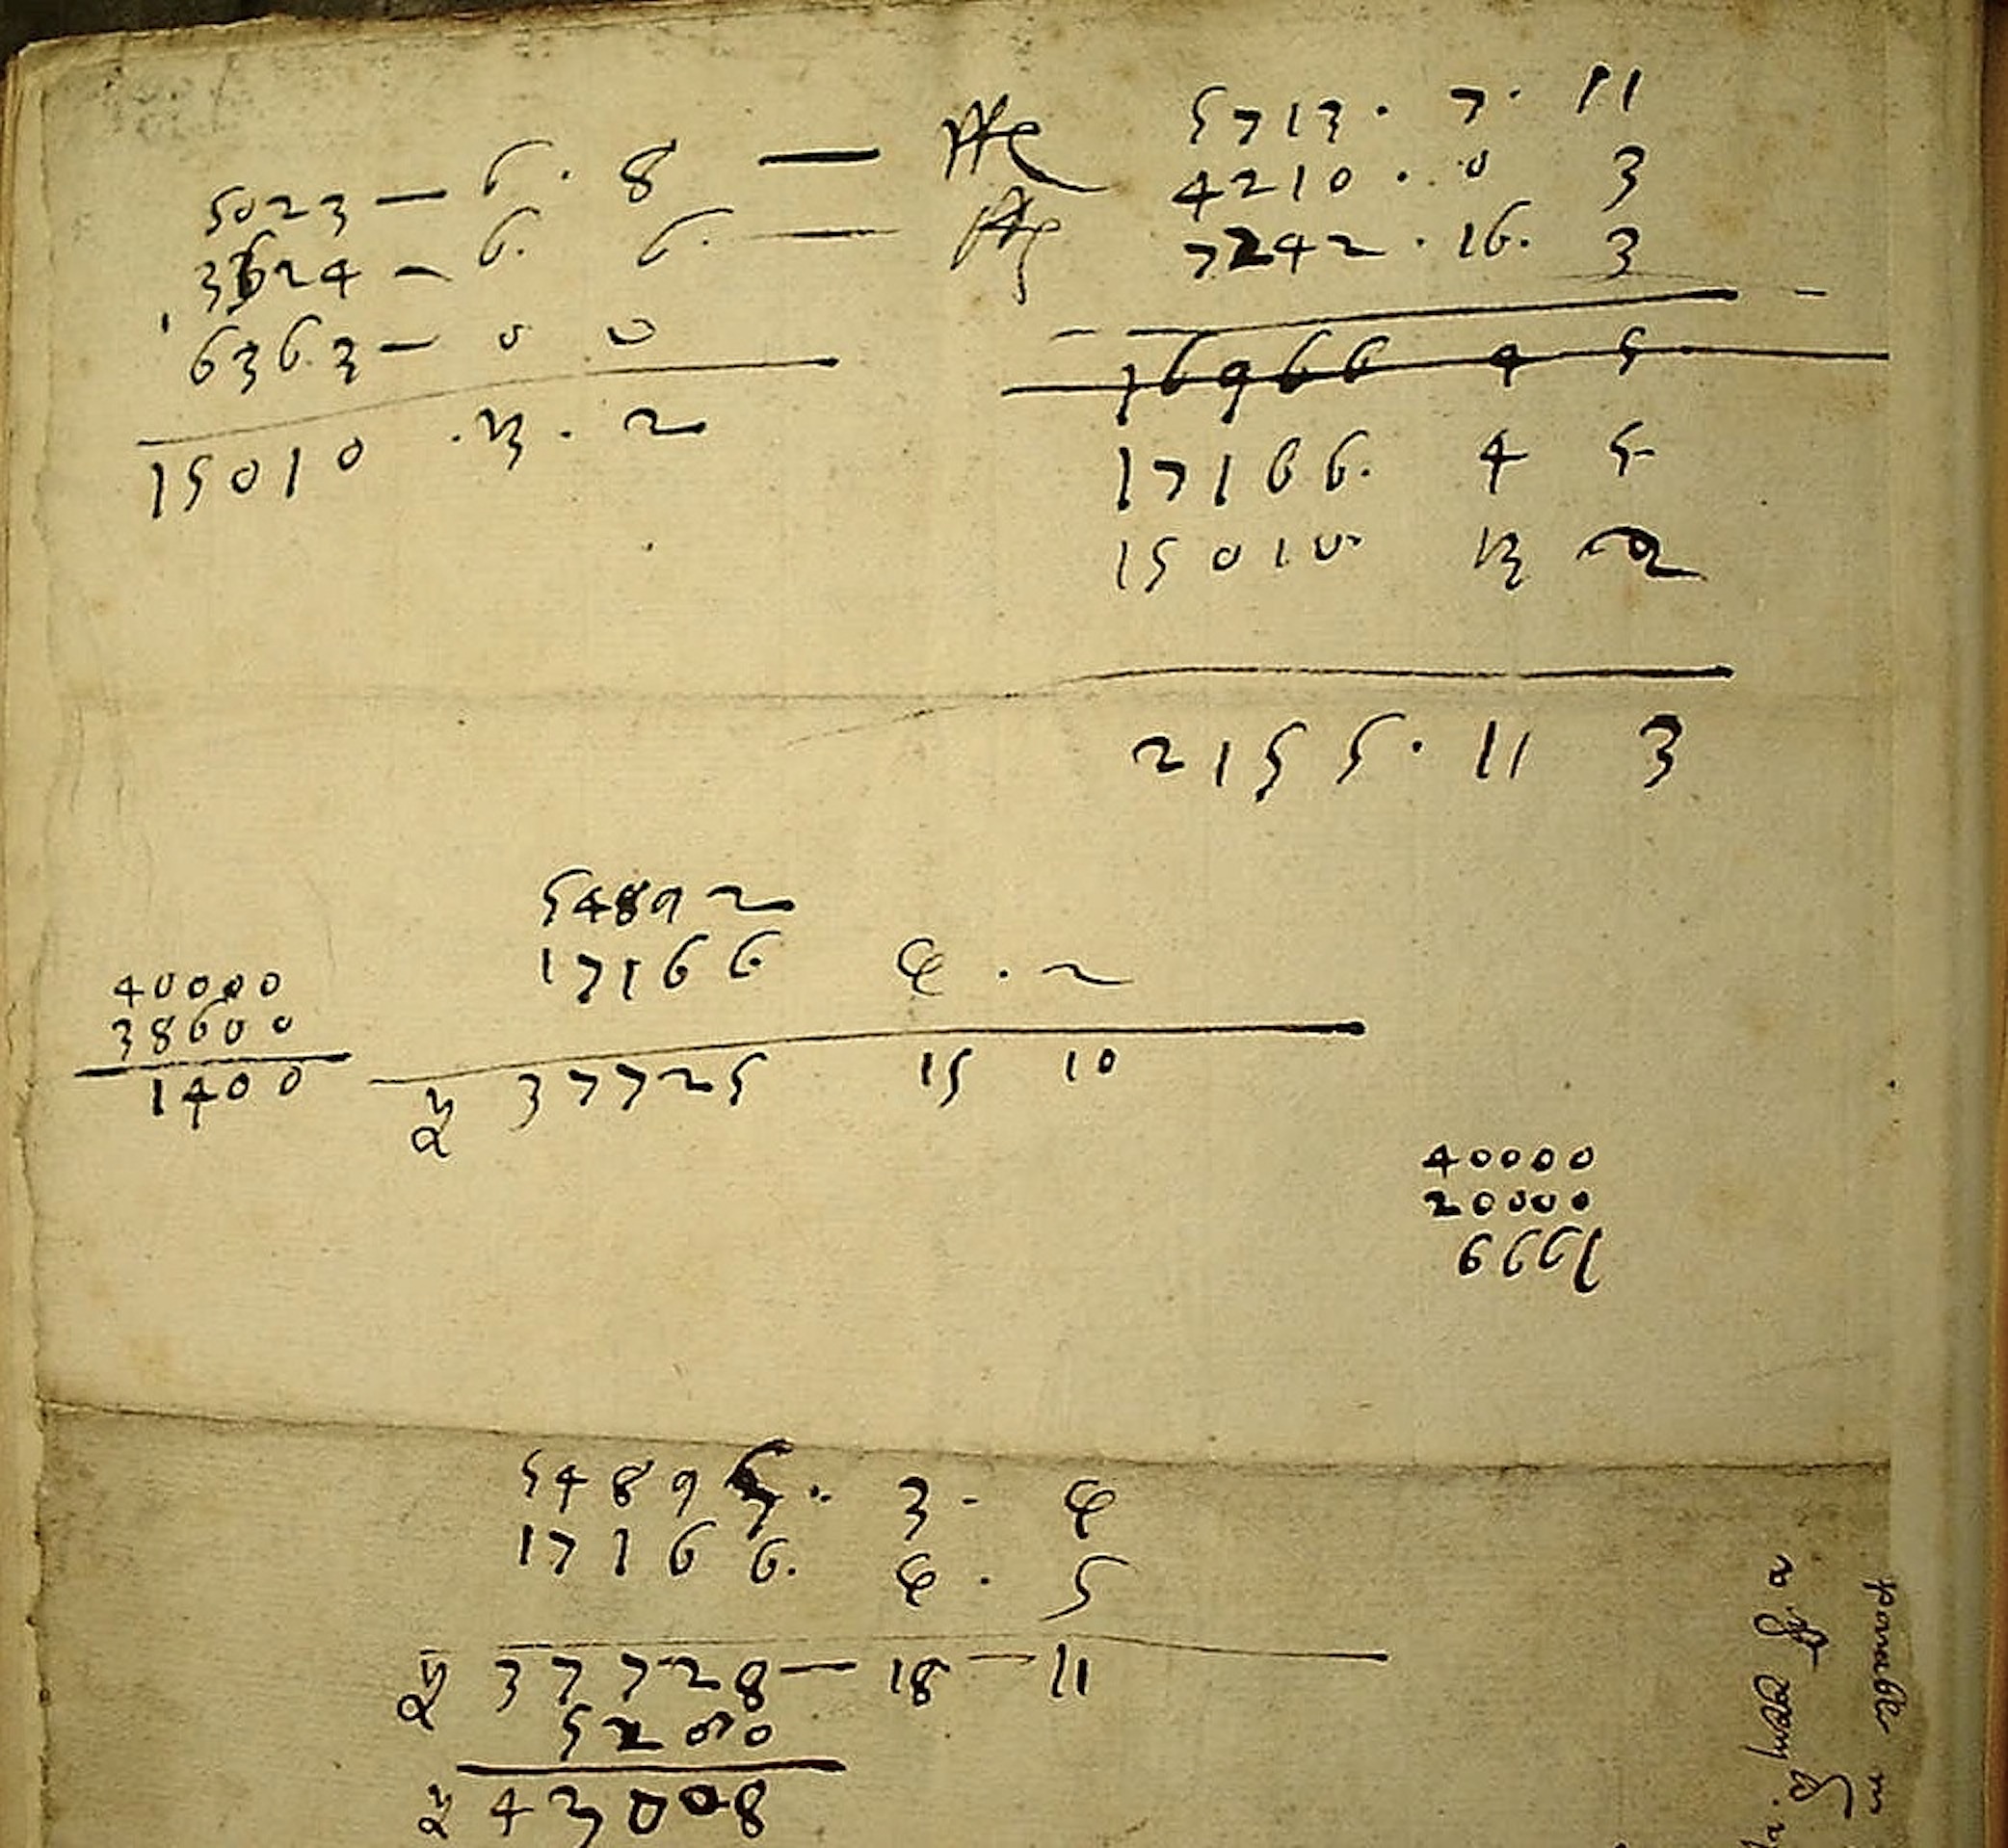 5023 — 6 . 8 —
3624 — 6. 6. —
6363 — 0 0
15010 . 13 . 2
5713 . 7 . 11
4210 . 0 3
7242 . 16. 3
16966 4 5
17166. 4 5
15010 13 2
2155 . 11 3
54892
17166. 4 . 2
37725 15 10
40000
38600
1400
40000
20000
6661
5489 . 3 - 4
17166. 4 . 5
37728 — 18 — 11
5280
43008